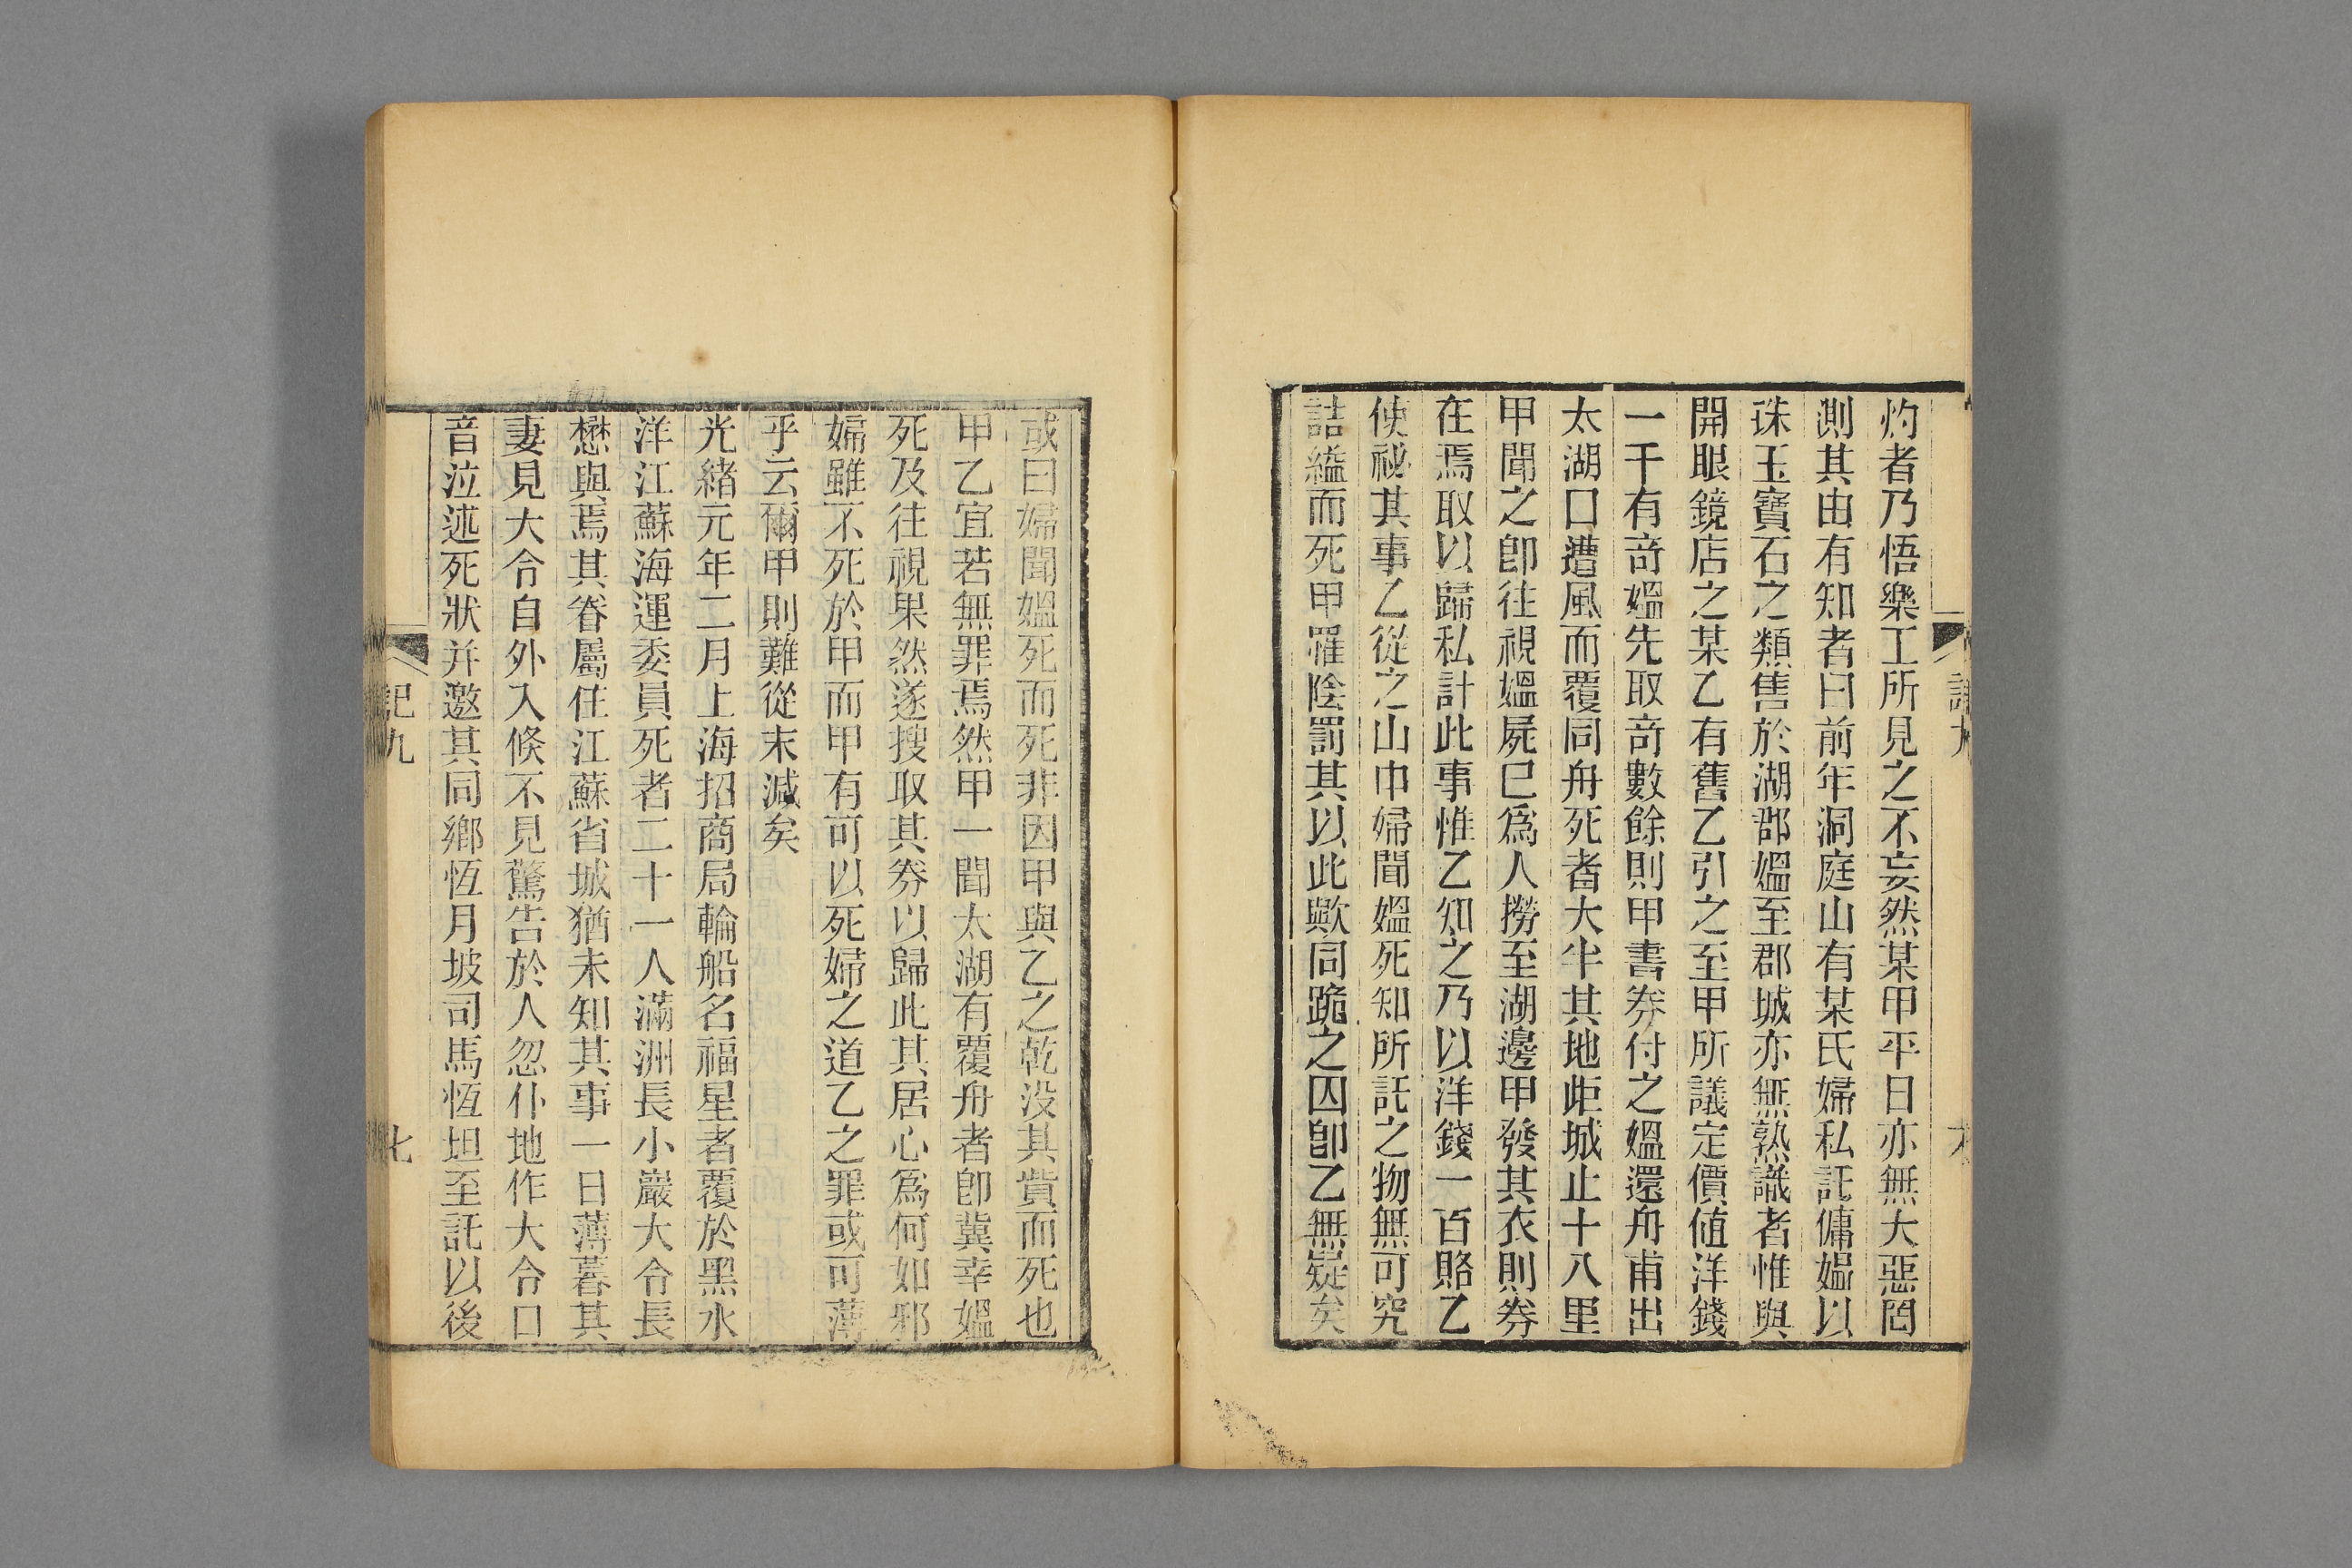 灼者乃悟樂工所見之不妄然某甲平日亦無大惡罔
測其由有知者曰前年洞庭山有某氏婦私託傭媼以
珠玉寶石之類售於湖郡媼至郡城亦無熟識者惟與
開眼鏡店之某乙有舊乙引之至甲所議定價值洋錢
一千有奇媼先取奇數餘則甲書劵付之媼還舟甫出
太湖口遭風而覆同舟死者大半其地距城止十八里
甲聞之卽往視媼屍已爲人撈至湖邊甲發其衣則劵
在焉取以歸私計此事惟乙知之乃以洋錢一百賂乙
使祕其事乙從之山中婦聞媼死知所託之物無可究
詰縊而死甲罹陰罰其以此歟同跪之囚卽乙無疑矣
或曰婦聞媼死而死非因甲與乙之乾没其貲而死也
甲乙宜若無罪焉然甲一聞太湖有覆舟者卽冀幸媼
死及往視果然遂搜取其劵以歸此其居心爲何如邪
婦雖不死於甲而甲有可以死婦之道乙之罪或可薄
乎云爾甲則難從末減矣
光緒元年二月上海招商局輪船名福星者覆於黑水
洋江蘇海運委員死者二十一人滿洲長小巖大令長
懋與焉其眷屬住江蘇省城猶未知其事一日薄暮其
妻見大令自外入倏不見驚告於人忽仆地作大令口
音泣述死狀并邀其同鄉恆月坡司馬恆坦至託以後
記九
七